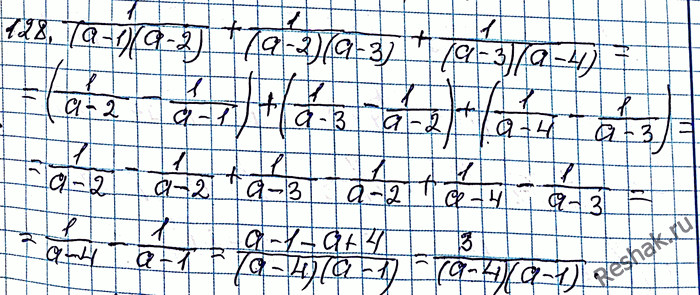 128. 1/((a-1)(a-2)) + 1/((a-2)(a-3)) + 1/((a-3)(a-4)) =
= (1/(a-2) - 1/(a-1)) + (1/(a-3) - 1/(a-2)) + (1/(a-4) - 1/(a-3)) =
= 1/(a-2) - 1/(a-2) + 1/(a-3) - 1/(a-2) + 1/(a-4) - 1/(a-3) =
= 1/(a-4) - 1/(a-1) = (a-1-a+4)/((a-4)(a-1)) = 3/((a-4)(a-1))
Reshak.ru